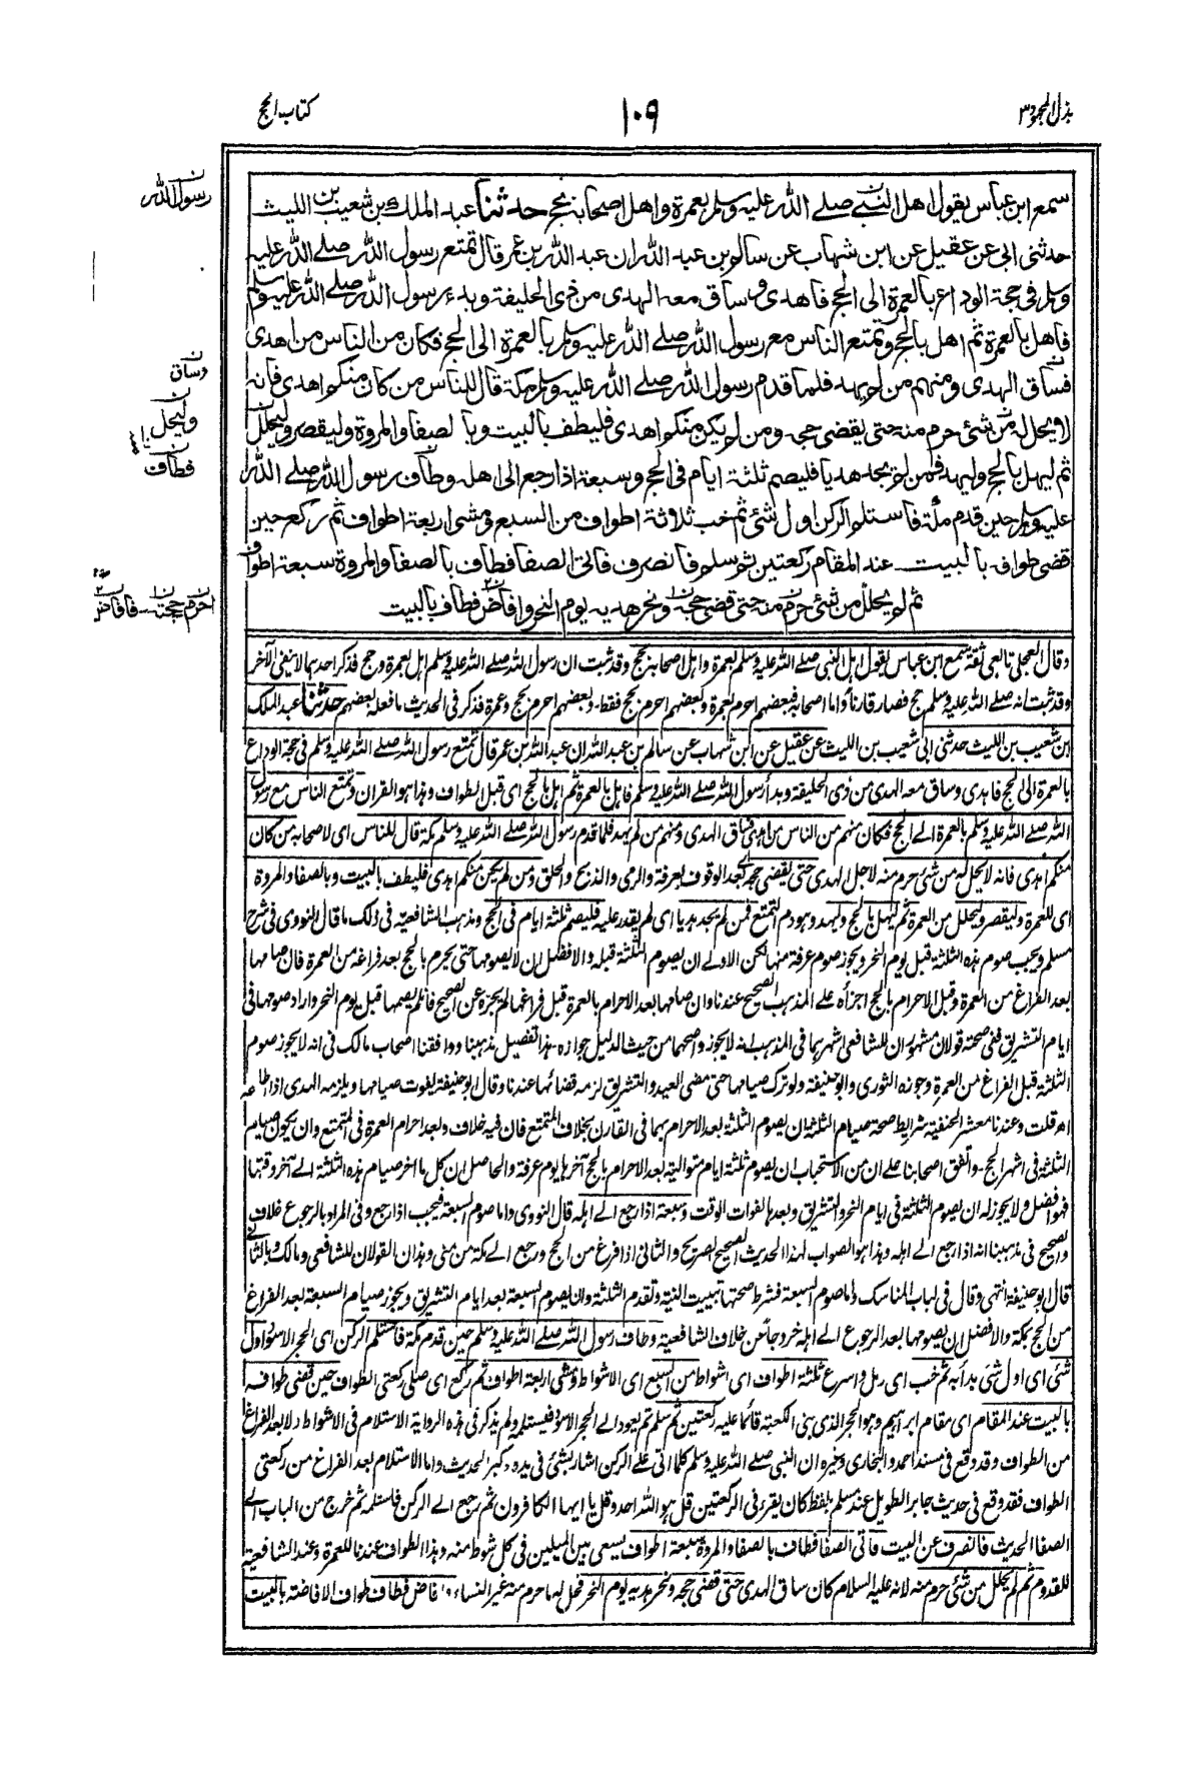 بذل المجهود٣
١٠٩
كتاب الحج
سمع ابن عباس يقول اهل النبي صلے الله عليه وسلم بعمرة واهل اصحابه بحج حدثنا عبد الملك بن شعيب بن الليث
رسول الله
حدثنى ابى عن عقيل عن ابن شهاب عن سالم بن عبد الله ان عبد الله بن عمر قال تمتع رسول الله صلے الله عليه
وسلم فى حجة الوداع بالعمرة الى الحج فاهدى وساق معه الهدى من ذى الحليفة وبدء رسول الله صلے الله عليه وسلم
فاهل بالعمرة ثم اهل بالحج وتمتع الناس مع رسول الله صلے الله عليه وسلم بالعمرة الى الحج فكان من الناس من اهدى
وساق
فساق الهدى ومنهم من لم يهد فلما قدم رسول الله صلے الله عليه وسلم مكة قال للناس من كان منكم اهدى فانه
وليحل
لا يحل له من شئ حرم منه حتى يقضى حجه ومن لم يكن منكم اهدى فليطف بالبيت وبالصفا والمروة وليقصر وليحلل
فطاف
ثم ليهل بالحج وليهد فمن لم يجد هديا فليصم ثلثة ايام فى الحج وسبعة اذا رجع الى اهله وطاف رسول الله صلے الله
عليه وسلم حين قدم مكة فاستلم الركن اول شئ ثم خب ثلاثة اطواف من السبع ومشى اربعة اطواف ثم ركع حين
قضى طوافه بالبيت عند المقام ركعتين ثم سلم فانصرف فاتى الصفا فطاف بالصفا والمروة سبعة اطواف
ثم لم يحلل من شئ حرم منه حتى قضى حجه ونحر هديه يوم النحر وافاض فطاف بالبيت
وقال العجلى تابعى ثقة سمع ابن عباس يقول اهل النبى صلے الله عليه وسلم بعمرة واهل اصحابه بحج وقد ثبت ان رسول الله صلے الله عليه وسلم اهل بعمرة وحج فذكر احدهما لا ينفى الآخر
وقد ثبت انه صلے الله عليه وسلم حج فصار قارنا واما اصحابه فبعضهم احرم بعمرة وبعضهم احرم بحج فقط وبعضهم احرم بحج وعمرة فذكر فى الحديث ما فعله بعضهم حدثنا عبد الملك
ابن شعيب بن الليث حدثنى ابى شعيب بن الليث عن عقيل عن ابن شهاب عن سالم بن عبد الله ان عبد الله بن عمر قال تمتع رسول الله صلے الله عليه وسلم فى حجة الوداع
بالعمرة الى الحج فاهدى وساق معه الهدى من ذى الحليفة وبدأ رسول الله صلے الله عليه وسلم فاهل بالعمرة ثم اهل بالحج اى قبل الطواف وهذا هو القران وتمتع الناس مع رسول
الله صلے الله عليه وسلم بالعمرة الے الحج فكان منهم من الناس من اهدى فساق الهدى ومنهم من لم يهد فلما قدم رسول الله صلے الله عليه وسلم مكة قال للناس اى لاصحابه من كان
منكم اهدى فانه لا يحل له من شئ حرم منه لاجل الهدى حتى يقضى حجه بعد الوقوف بعرفة والرمى والذبح والحلق ومن لم يكن منكم اهدى فليطف بالبيت وبالصفا والمروة
اى للعمرة وليقصر وليحلل من العمرة ثم ليهل بالحج وليهد وهو دم التمتع فمن لم يجد هديا اى لم يقدر عليه فليصم ثلثة ايام فى الحج ومذهب الشافعية فى ذلك ما قال النووى فى شرح
مسلم ويجب صوم هذه الثلثة قبل يوم النحر ويجوز صوم عرفة منها لكن الاولے ان يصوم الثلثة قبله والافضل ان لا يصومها حتى يحرم بالحج بعد فراغه من العمرة فان صامها
بعد الفراغ من العمرة وقبل الاحرام بالحج اجزأه علے المذهب الصحيح عندنا وان صامها بعد الاحرام بالعمرة قبل فراغها لم يجزه عن الصحيح فان لم يصمها قبل يوم النحر واراد صومها فى
ايام التشريق ففى صحته قولان مشهوران للشافعى اشهرهما فى المذهب انه لا يجوز واصحهما من حيث الدليل جوازه هذا تفصيل مذهبنا ووافقنا اصحاب مالك فى انه لا يجوز صوم
الثلثة قبل الفراغ من العمرة وجوزه الثورى وابو حنيفة ولو ترك صيامها حتى مضى العيد والتشريق لزمه قضائها عندنا وقال ابو حنيفة يفوت صيامها ويلزمه الهدى اذا استطاعه
اھ قلت وعندنا معشر الحنفية شرايط صحة صيام الثلثة ان يصوم الثلثة بعد الاحرام بهما فى القارن بخلاف المتمتع فان فيه خلاف وبعد احرام العمرة فى المتمتع وان يكون صيام
الثلثة فى اشهر الحج واتفق اصحابنا علے ان من الاستحباب ان يصوم ثلثة ايام متوالية بعد الاحرام بالحج آخرها يوم عرفة والحاصل ان كل ما اخر صيام هذه الثلثة الے آخر وقتها
فهو افضل ولا يجوز له ان يصوم الثلثة فى ايام النحر والتشريق وبعدها لفوات الوقت وسبعة اذا رجع الے اهله قال النووى واما صوم السبعة فيجب اذا رجع وفى المراد بالرجوع خلاف
والصحيح فى مذهبنا انه اذا رجع الے اهله وهذا هو الصواب لهذا الحديث الصحيح الصريح والثانى اذا فرغ من الحج ورجع الے مكة من منى وهذان القولان للشافعى ومالك وبالثانى
قال ابو حنيفة انتهى وقال فى لباب المناسك واما صوم السبعة فشرط صحتها تبييت النية وتقدم الثلثة وان يصوم السبعة بعد ايام التشريق ويجوز صيام السبعة بعد الفراغ
من الحج بمكة والافضل ان يصومها بعد الرجوع الے اهله خروجا عن خلاف الشافعية وطاف رسول الله صلے الله عليه وسلم حين قدم مكة فاستلم الركن اى الحجر الاسود اول
شئ اى اول شئ بدأ به ثم خب اى رمل واسرع ثلثة اطواف اى اشواط من السبع اى الاشواط ومشى اربعة اطواف ثم ركع اى صلى ركعتى الطواف حين قضى طوافه
بالبيت عند المقام اى مقام ابراهيم وهو الحجر الذى بنى الكعبة قائما عليه ركعتين ثم سلم ثم يعود الے الحجر الاسود فيستلم ولم يذكر فى هذه الرواية الاستلام فى الاشواط ولا بعد الفراغ
من الطواف وقد وقع فى مسند احمد والبخارى وغيره ان النبى صلے الله عليه وسلم كلما اتى علے الركن اشار بشئ فى يده وكبر الحديث واما الاستلام بعد الفراغ من ركعتى
الطواف فقد وقع فى حديث جابر الطويل عند مسلم بلفظ كان يقرئ فى الركعتين قل هو الله احد وقل يا ايها الكافرون ثم رجع الے الركن فاستلمه ثم خرج من الباب الے
الصفا الحديث فانصرف عن البيت فاتى الصفا فطاف بالصفا والمروة سبعة اطواف يسعى بين الميلين فى كل شوط منه وهذا الطواف عندنا للعمرة وعند الشافعية
للقدوم ثم لم يحلل من شئ حرم منه لانه عليه السلام كان ساق الهدى حتى قضى حجه ونحر هديه يوم النحر فحل له ما حرم منه غير النساء وافاض فطاف طواف الافاضة بالبيت